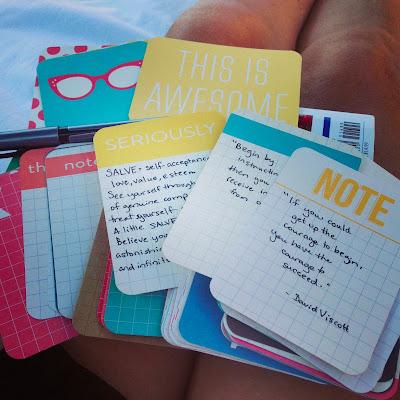 THIS IS
AWESOME
SERIOUSLY
SALVE = self-acceptance
love, value, esteem
See yourself through
of genuine comp
treat yourself
A little SALVE
Believe you
astonishin
and infinite
note
th
"Begin by
instructin
then you
receive in
from o
NOTE
"If you could
get up the
courage to begin,
you have the
courage to
succeed."
- David Viscott